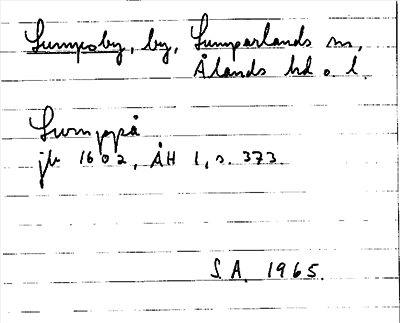 Lumpoby, by, Lumparlands sn,
Ålands hd o. l.
Lumppå
jb 1602, ÅH 1, s. 373.
S.A. 1965.